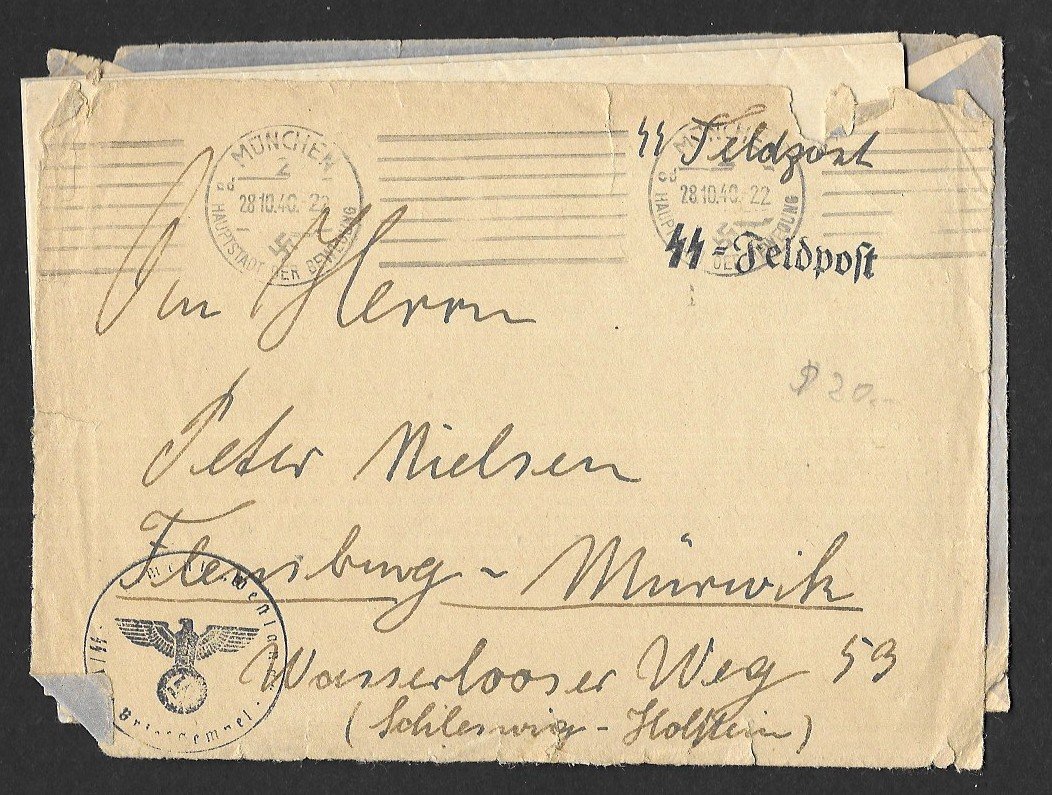 MÜNCHEN
2
28.10.40. 22
HAUPTSTADT DER BEWEGUNG
MÜNCHEN
28.10.40. 22
ᛋᛋ Feldpost
ᛋᛋ=Feldpost
An Herrn
$ 20.-
Peter Nielsen
Flensburg - Mürwik
Wasserlooser Weg 53
(Schleswig-Holstein)
Briefstempel